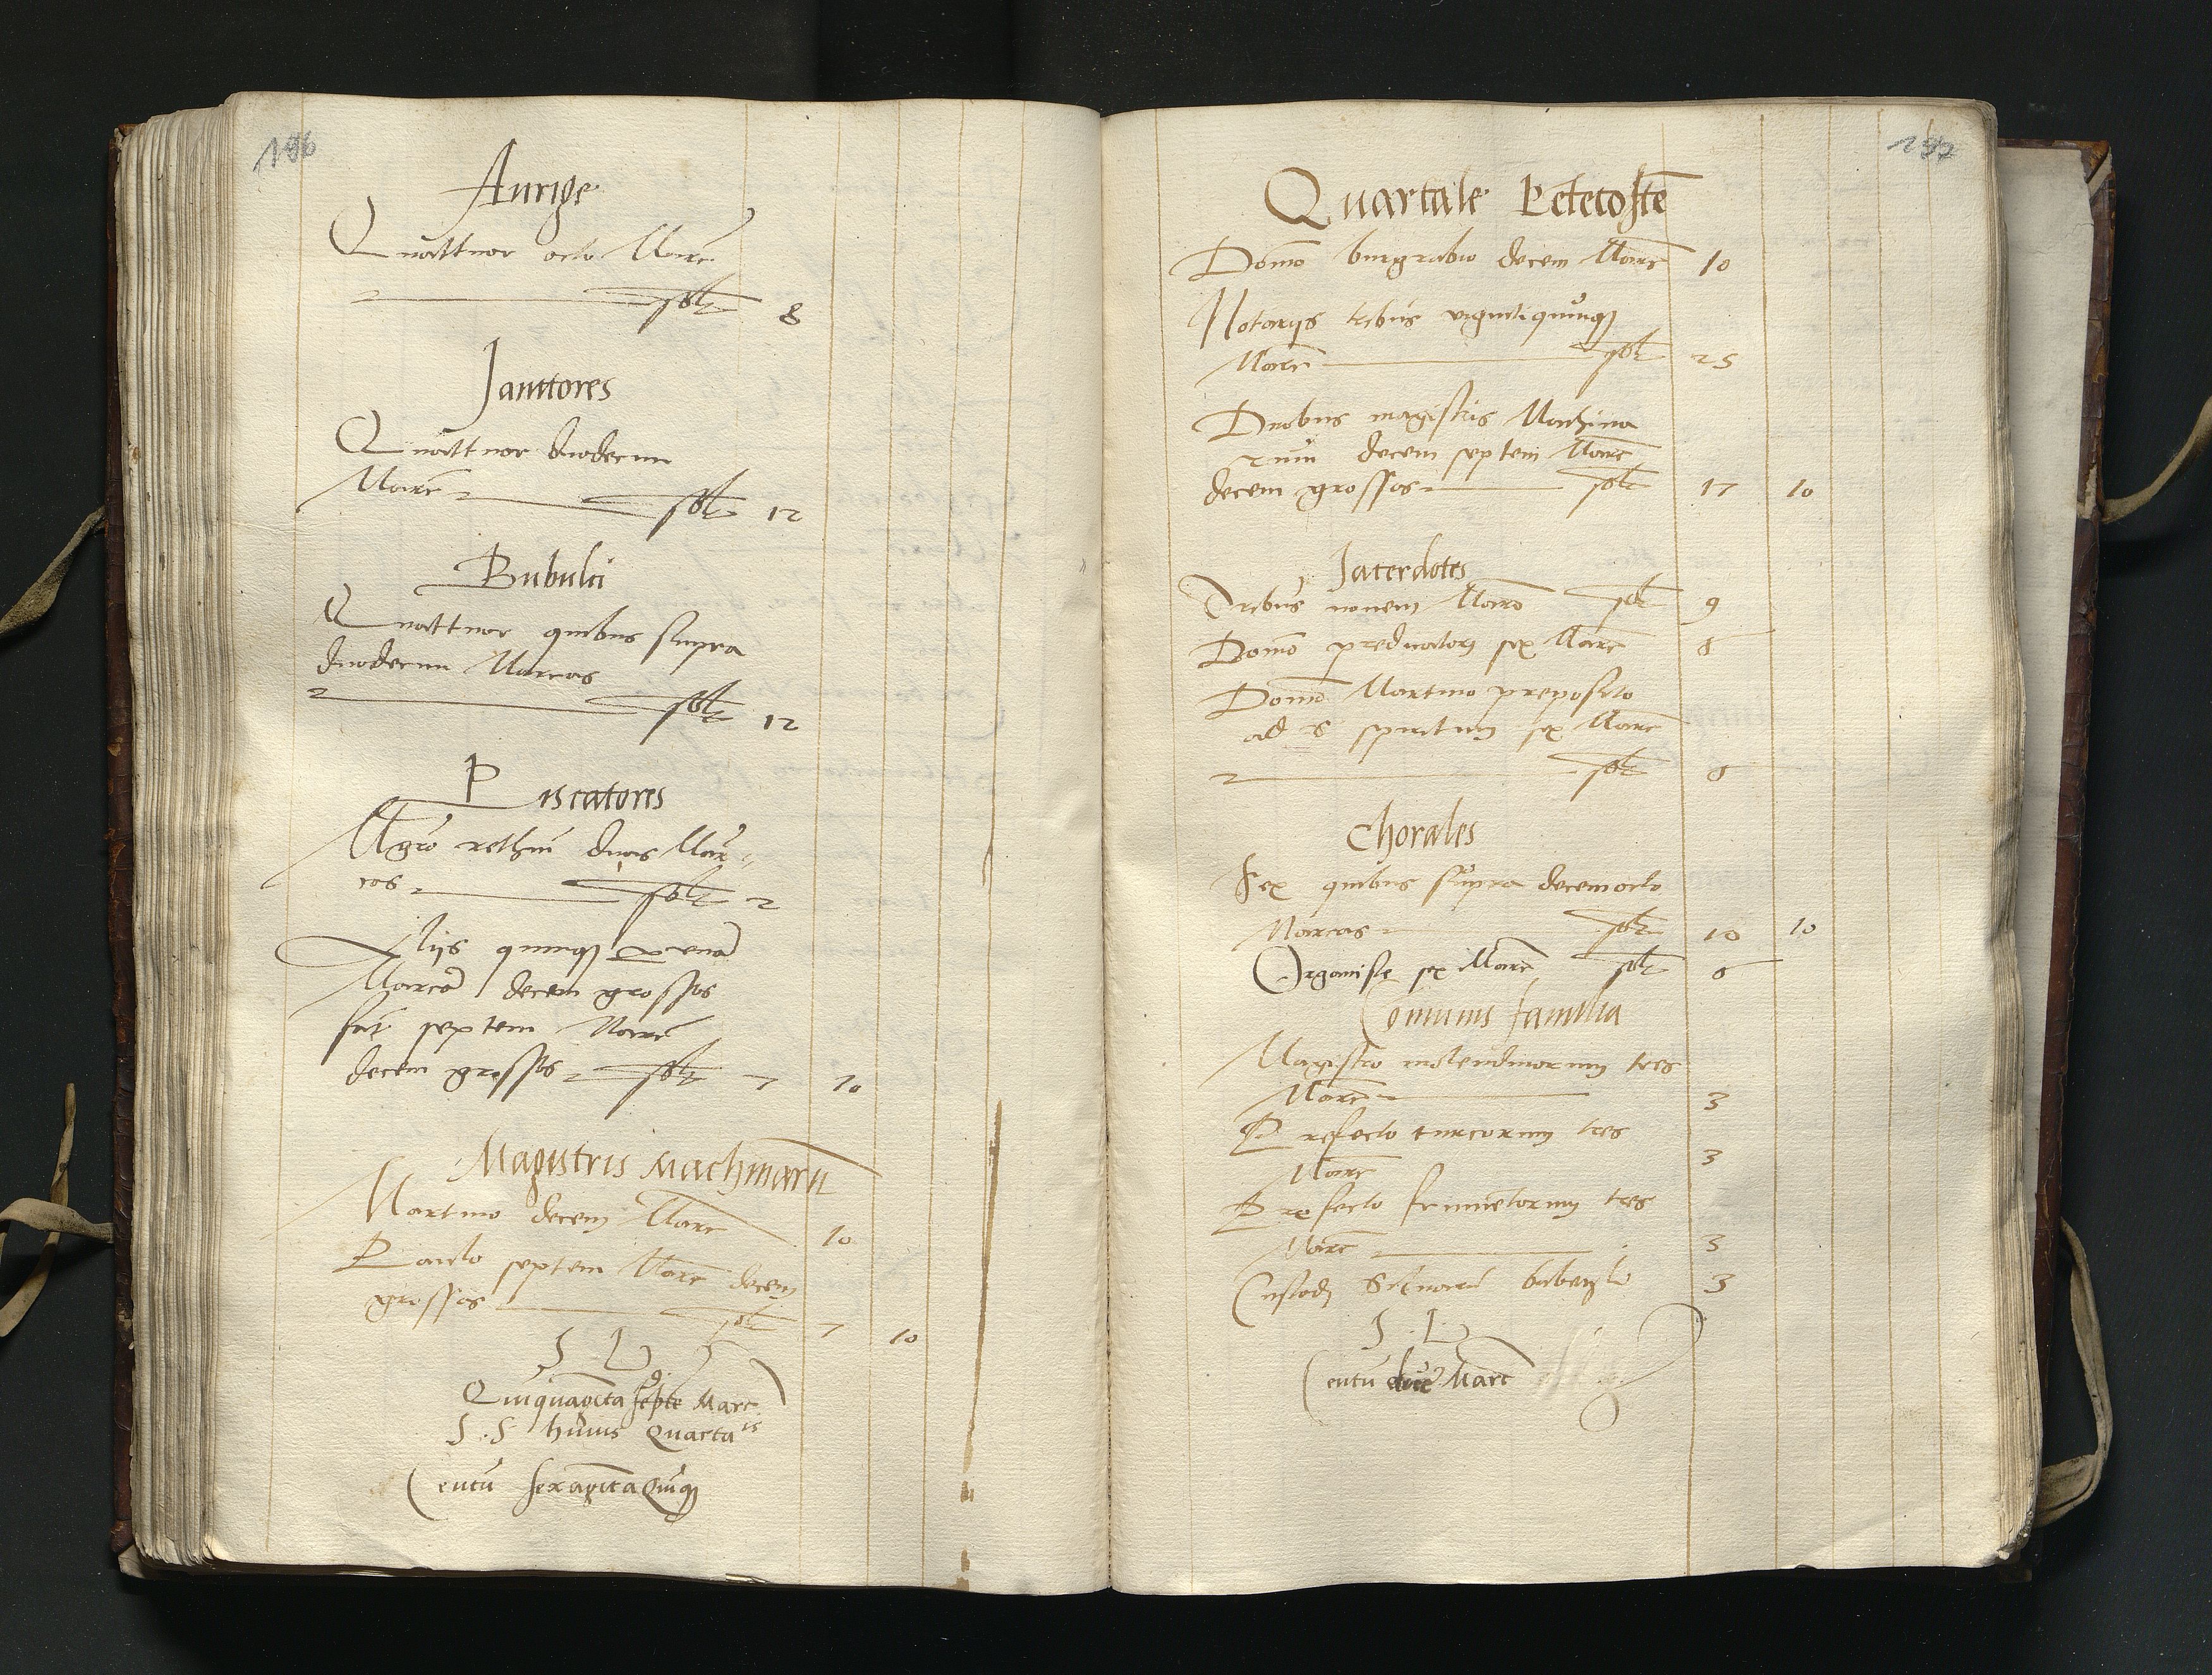 196
Aurige
Quattuor octo Marc̄
solt 8
Janitores
Quattuor duodecim
Marc̄ solt 12
Bubulci
Quattuor quibus supra
duodecim Marcas
solt 12
Piscatores
Mgro rethiū duas Mar
cas solt 2
Aliis quinq₃ ꝑ unā
Marcā decem grossos
fac̄ septem Marc̄
decem grossos solt 7 10
Magistris Machinarū
Martino decem Marc̄ 10
Paulo septem Marc̄ decem
grossos solt 7 10
S L
Quīquagīta septē Marc
S S huius Quartaīs
Centū sexagīta Quīq₃
197
Quartale Pētecostē
Domō burgrabio decem Marc̄ 10
Notarijs tribus vigintiquinq₃
Marc̄ solt 25
Duobus magistris Machina
rum decem septem Marc̄
decem grossos solt 17 10
Sacerdotes
Tribus novem Marc̄ solt 9
Domō predicatori sex Marc̄ 6
Domō Martino preposito
ad S spiritum sex Marc̄
solt 6
Chorales
Sex quibus supra decemocto
Marcas solt 18 10
Organiste sex Marc̄ solt 6
Comunis familia
Magistro molendinorum tres
Marc̄ 3
Prefecto turcorum tres
Marc̄ 3
Prefecto frumētorum tres
Marc̄ 3
Custodi Siluarū 3
S L
Centū due Marc̄